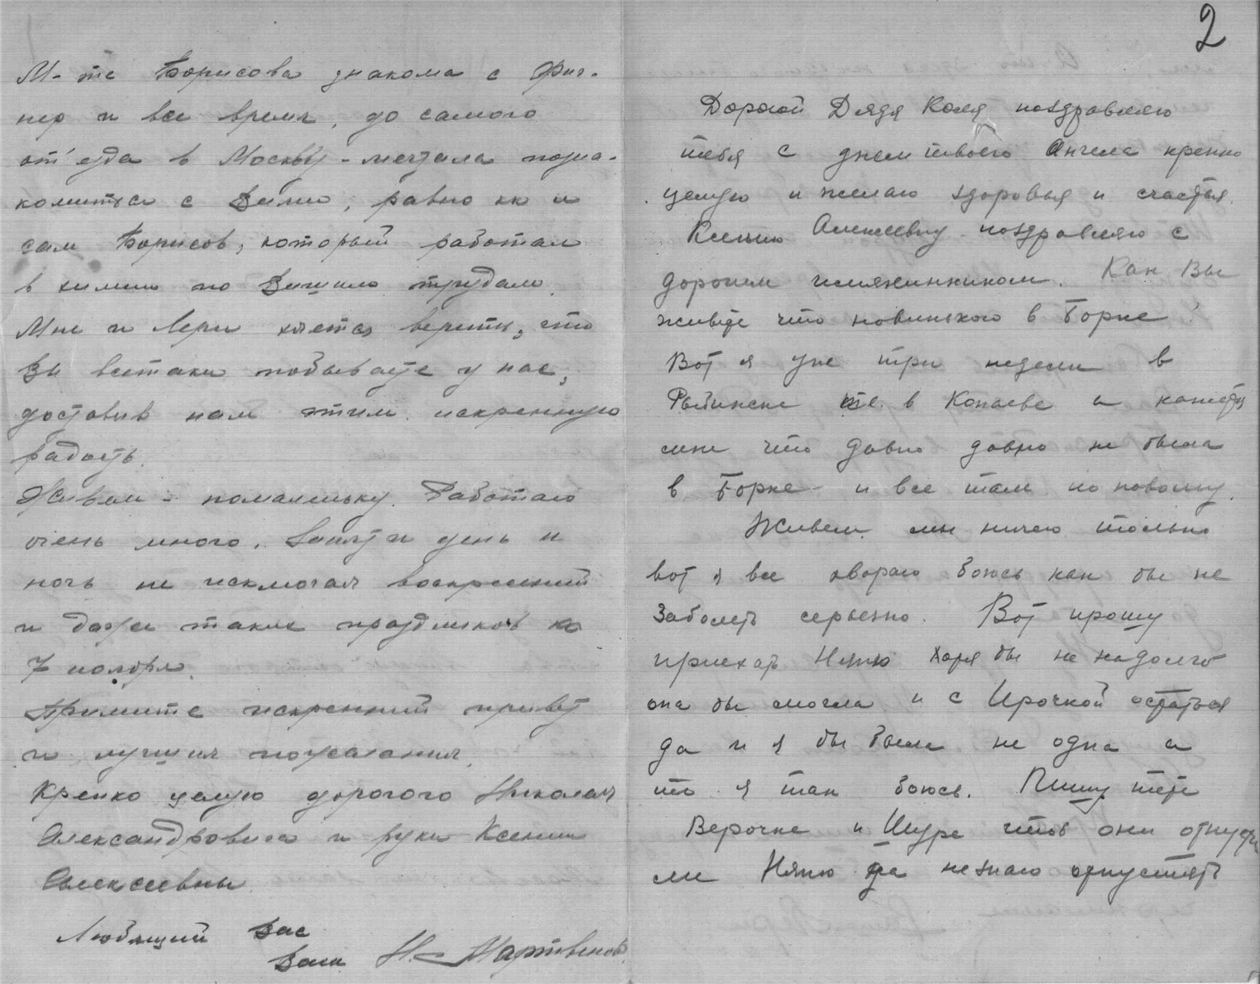 М-me Борисова знакома с Фиг-
нер и все время, до самого
от'езда в Москву - мечтала позна-
комиться с Вами, равно как и
сам Борисов, который работал
в химии по Вашим трудам.
Мне и Вере хочется верить, что
Вы всетаки побываете у нас,
доставив нам этим искреннюю
радость.
Живем - помаленьку. Работаю
очень много. Занят и день и
ночь не исключая воскресений
и даже таких праздников ка
7 ноября.
Примите искренний привет
и лучшия пожелания.
Крепко целую дорогого Николая
Александровича и руки Ксении
Алексеевны
Любящий Вас
Ваш Н. Мартвенов
2
Дорогой Дядя Коля поздравляю
тебя с днем твоего Ангела крепко
целую и желаю здоровья и счастья.
Ксению Алексеевну поздравляю с
дорогим имянинником. Как Вы
живете что новинького в Борке
Вот я уже три недели в
Рыбинске те. в Копаеве а кажется
мне что давно давно не была
в Борке и все там по новому.
Живем мы ничего только
вот я все хвораю боюсь как бы не
Заболеть серьезно. Вот прошу
приехать Няню хотя бы не надолго
она бы могла и с Ирочкой остаться
да и я бы была не одна а
то я так боюсь. Пишу тете
Верочке и Шуре чтоб они отпусти
ли Няню да незнаю отпустят